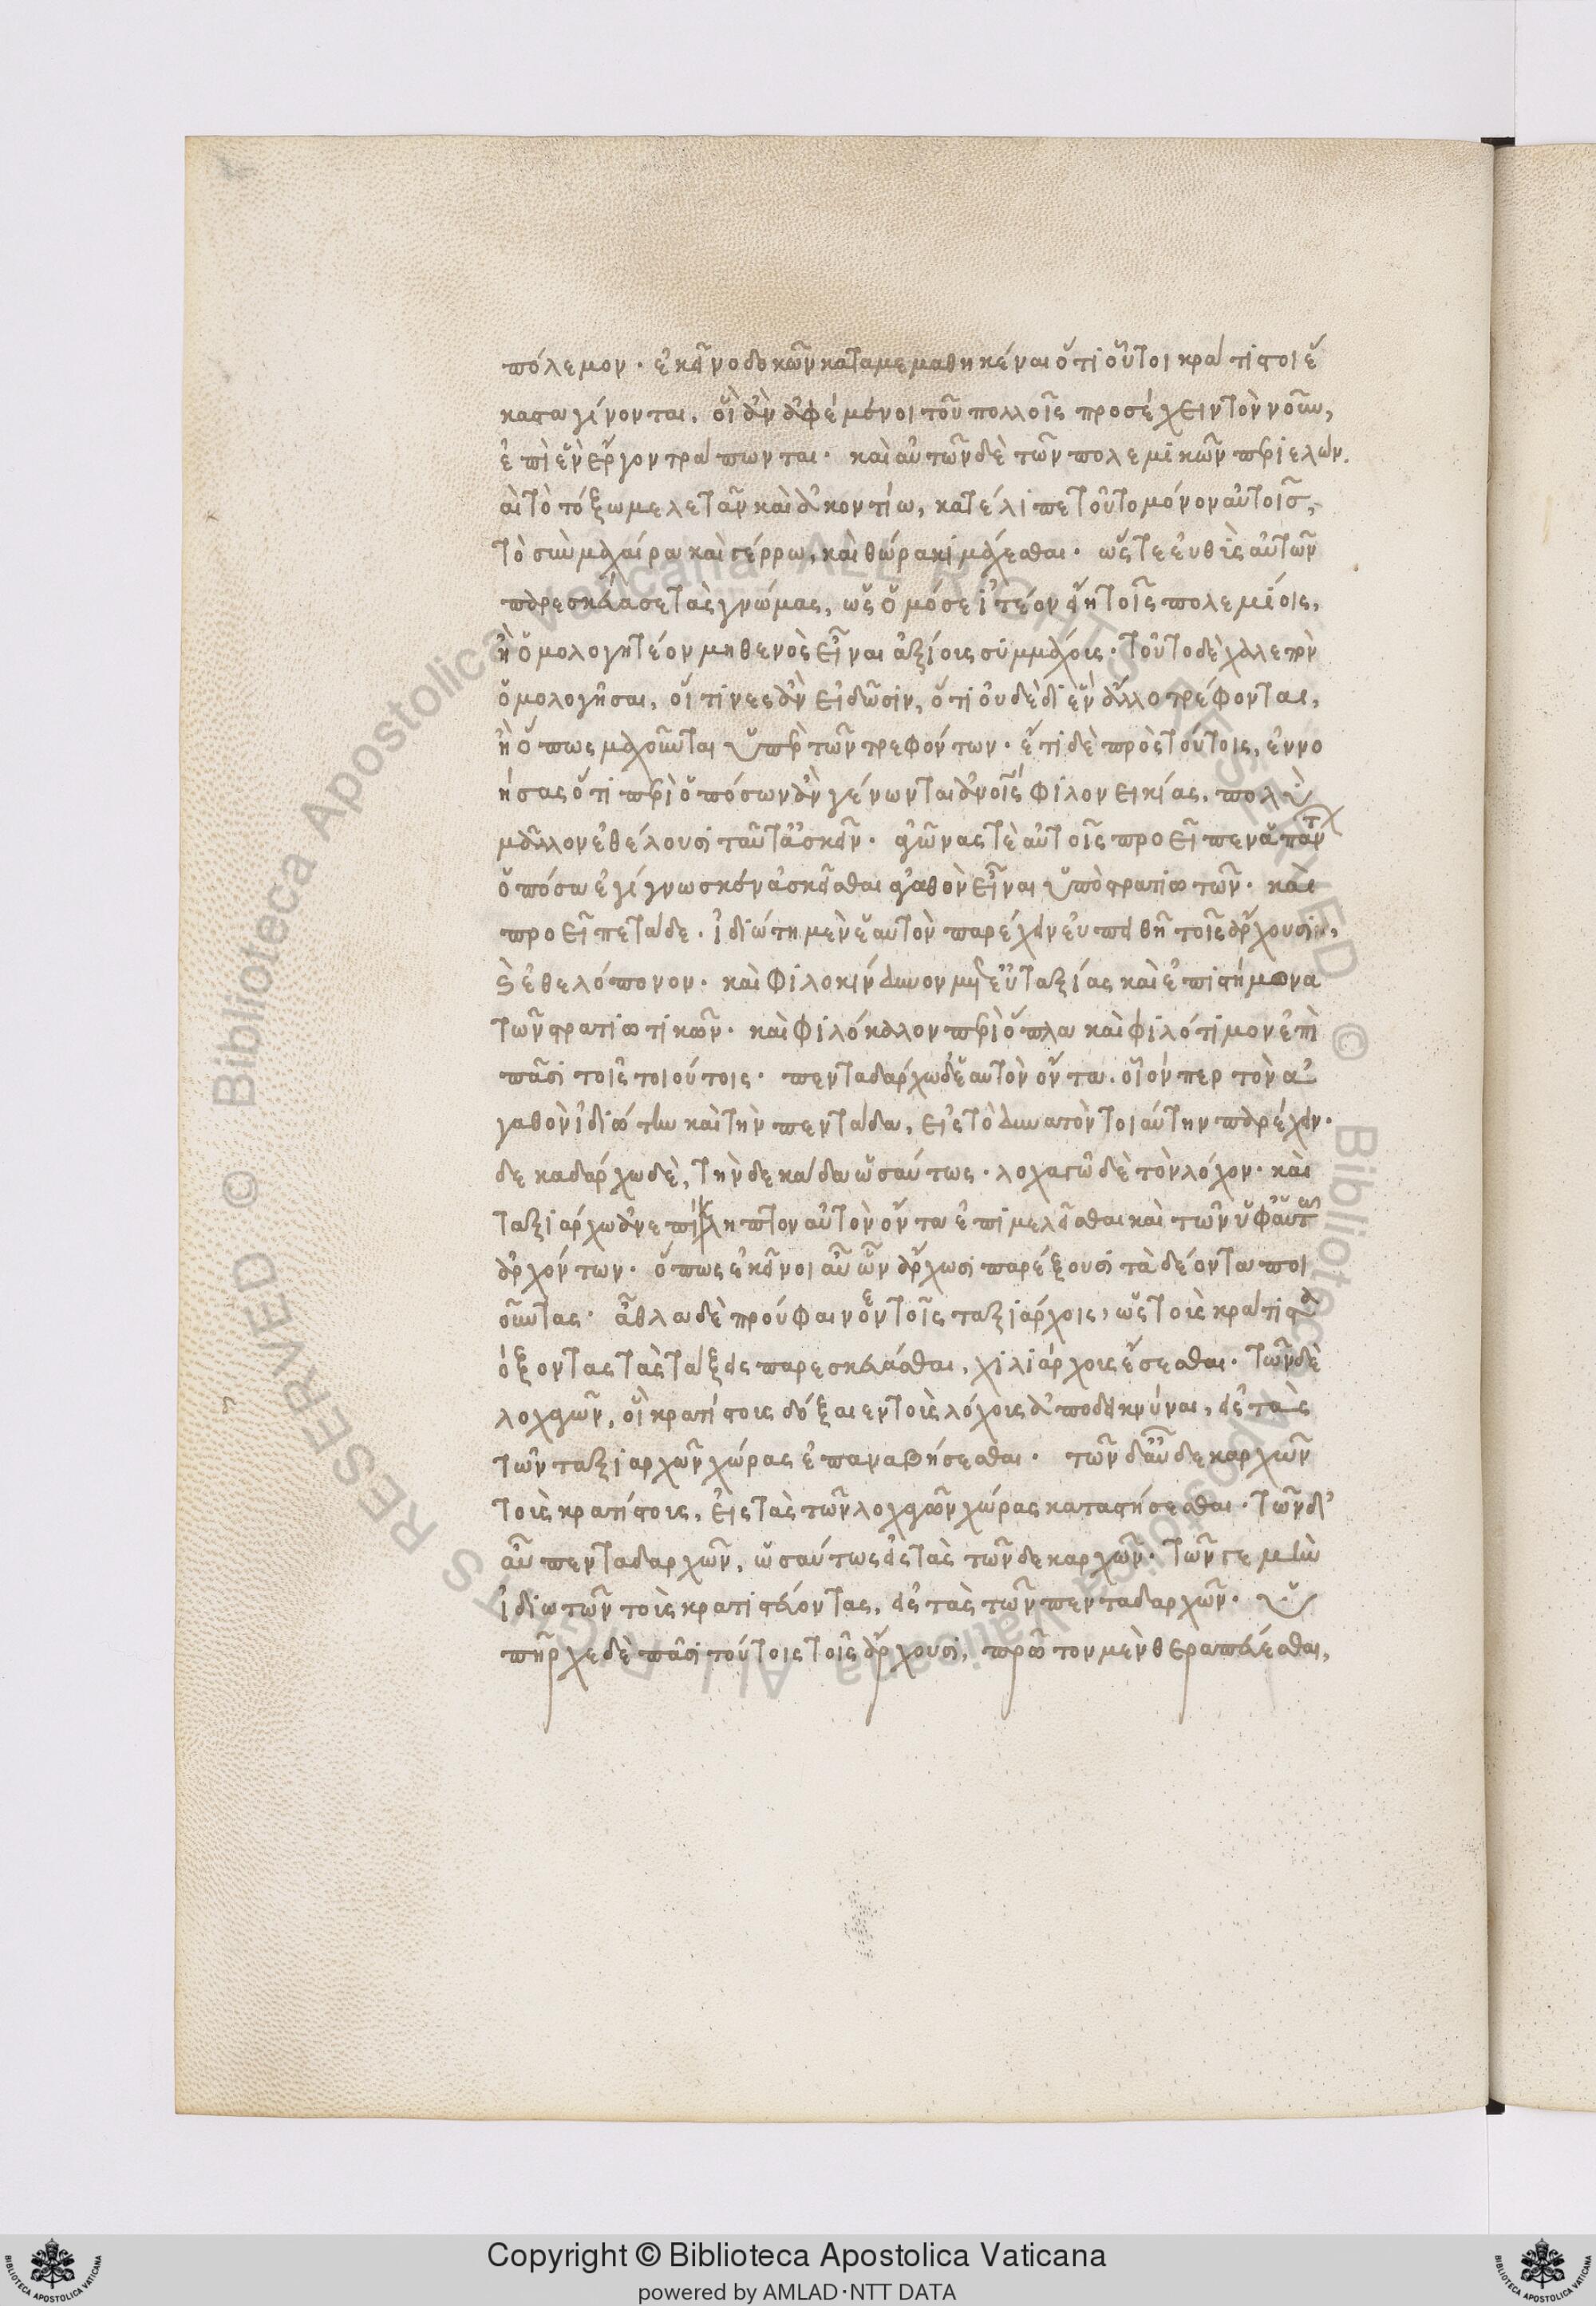 πόλεμον. ἐκεῖνο δοκῶν καταμεμαθηκέναι ὅτι οὗτοι κράτιστοι ἕ
καστα γίνονται, οἳ ἂν ἀφέμενοι τοῦ πολλοῖς προσέχειν τὸν νοῦν,
ἐπὶ ἓν ἔργον τράπωνται. καὶ αὐτῶν δὲ τῶν πολεμικῶν περιελών.
αἱ τὸ τόξω μελετᾶν καὶ ἀκοντίω, κατέλιπε τοῦτο μόνον αὐτοῖς,
τὸ σὺν μαχαίρα καὶ γέρρω, καὶ θώρακι μάχεσθαι. ὥστε εὐθὺς αὐτῶν
παρεσκεύασε τὰς γνώμας, ὡς ὁμόσε ἰτέον εἴη τοῖς πολεμίοις,
ἢ ὁμολογητέον μηθενὸς εἶναι ἀξίους συμμάχους. τοῦτο δὲ χαλεπὸν
ὁμολογῆσαι, οἵτινες ἂν εἰδῶσιν, ὅτι οὐδὲ δι' ἓν ἄλλο τρέφονται,
ἢ ὅπως μαχοῦνται ὑπὲρ τῶν τρεφόντων. ἔτι δὲ πρὸς τούτοις, ἐννο
ήσας ὅτι περὶ ὁπόσων ἂν γένωνται ἀνοῖς φιλονεικίας, πολὺ
μᾶλλον ἐθέλουσι ταῦτα ἀσκεῖν. ἀγῶνάς τε αὐτοῖς προεῖπεν ἁπάντ
ὁπόσα ἐγίγνωσκεν ἀσκεῖσθαι ἀγαθὸν εἶναι ὑπὸ στρατιωτῶν. καὶ
προεῖπε τάδε. ἰδιώτη μὲν ἑαυτὸν παρέχειν εὐπειθῆ τοῖς ἄρχουσιν,
καὶ ἐθελόπονον. καὶ φιλοκίνδυνον μετ' εὐταξίας καὶ ἐπιστήμονα
τῶν στρατιωτικῶν. καὶ φιλόκαλον περὶ ὅπλα καὶ φιλότιμον ἐπὶ
πᾶσι τοῖς τοιούτοις. πενταδάρχω δ' ἑαυτὸν ὄντα. οἷόνπερ τὸν ἀ
γαθὸν ἰδιώτην καὶ τὴν πεντάδα, εἰς τὸ δυνατὸν τοιαύτην παρέχειν.
δεκαδάρχω δὲ, τὴν δεκάδα ὡσαύτως. λοχαγῶ δὲ τὸν λόχον. καὶ
ταξιάρχω ἀνεπίκλητον αὐτὸν ὄντα ἐπιμελεῖσθαι καὶ τῶν ὑφ' αὑτῶ
ἀρχόντων. ὅπως ἐκεῖνοι αὖ ὧν ἄρχωσι παρέξουσι τὰ δέοντα ποι
οῦντας. ἆθλα δὲ προύφαινεν τοῖς ταξιάρχοις, ὡς τοὺς κρατίστα
όξοντας τὰς τάξεις παρεσκευάσθαι, χιλιάρχους ἔσεσθαι. τῶν δὲ
λοχαγῶν, οἳ κρατίστους δόξαιεν τοὺς λόχους ἀποδεικνύναι, εἰς τὰς
τῶν ταξιαρχῶν χώρας ἐπαναβήσεσθαι. τῶν δ' αὖ δεκαρχῶν
τοὺς κρατίστους, εἰς τὰς τῶν λοχαγῶν χώρας καταστήσεσθαι. τῶν δ'
αὖ πενταδαρχῶν, ὡσαύτως εἰς τὰς τῶν δεκαρχῶν. τῶν γε μὴν
ἰδιωτῶν τοὺς κρατιστεύοντας, εἰς τὰς τῶν πενταδαρχῶν. ὑ
πῆρχε δὲ πᾶσι τούτοις τοῖς ἄρχουσι, πρῶτον μὲν θεραπεύεσθαι,
Copyright © Biblioteca Apostolica Vaticana
powered by AMLAD·NTT DATA